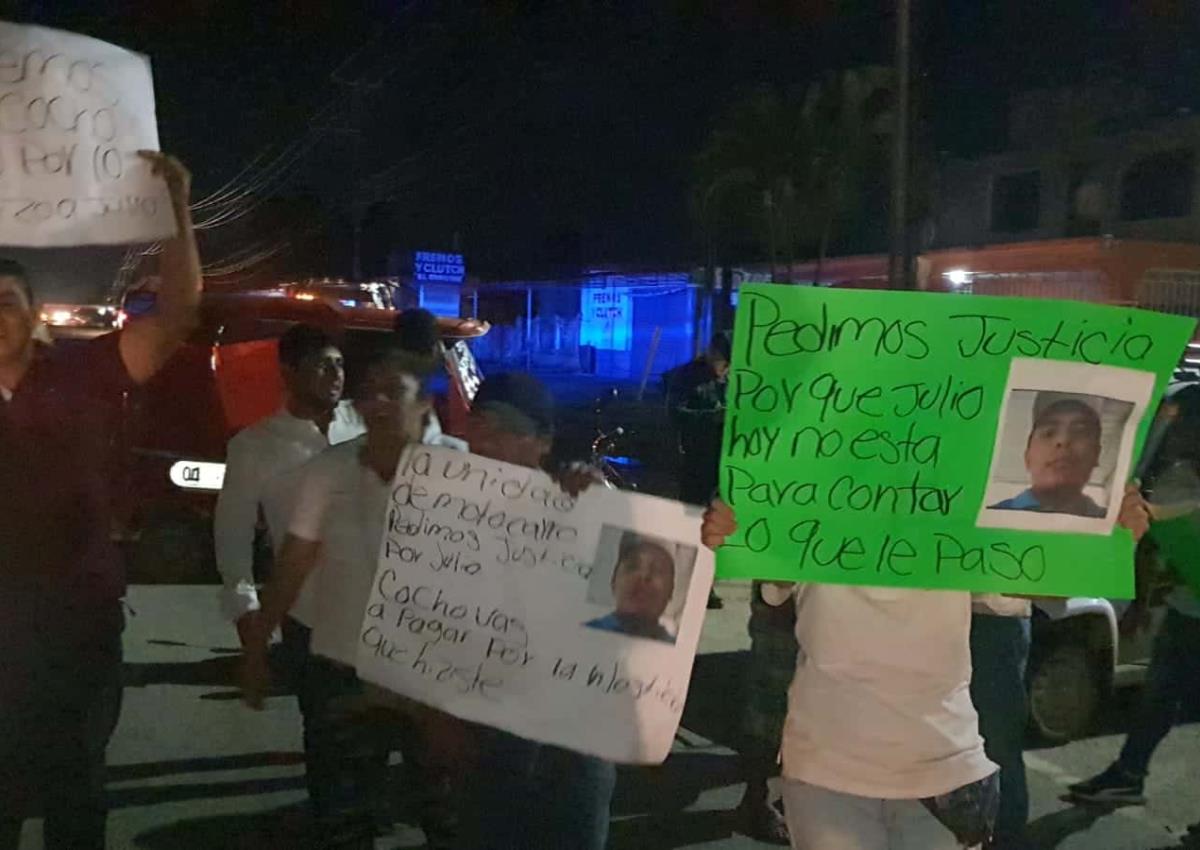 emos
Cacro
Por lo
FRENOS
Y CLUTCH
FRENOS
Y CLUTCH
Pedimos Justicia
Por que Julio
hoy no esta
Para contar
Lo que le Paso
la unidad
de motocarro
Pedimos Justicia
Por Julio
Cocho vas
a Pagar Por la injosticia
que hiziste